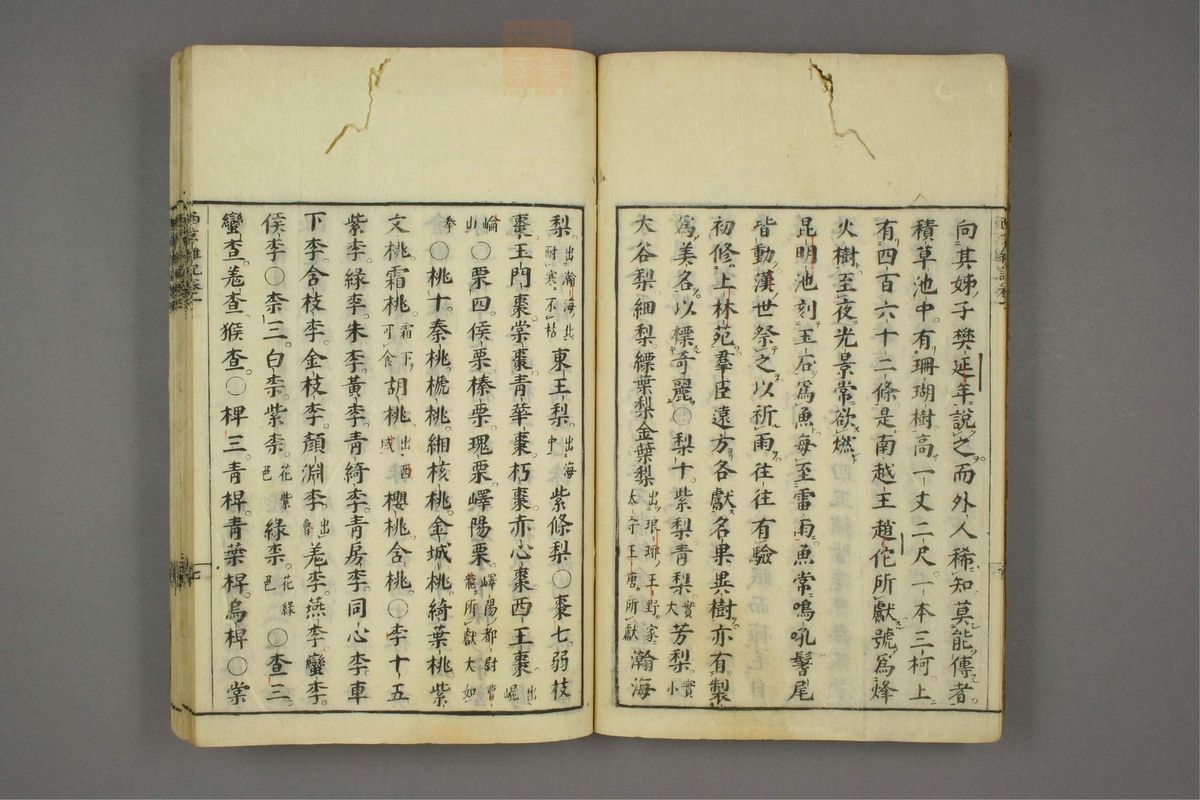 向其姊子樊延年說之而外人稀知莫能傳者
積草池中有珊瑚樹高一丈二尺一本三柯上
有四百六十二條是南越王趙佗所獻號爲烽
火樹至夜光景常欲燃
昆明池刻玉石爲魚每至雷雨魚常鳴吼鬐尾
皆動漢世祭之以祈雨往往有驗
初修上林苑羣臣遠方各獻名果異樹亦有製
爲美名以標奇麗○梨十紫梨青梨實大芳梨實小
大谷梨細梨縹葉梨金葉梨出琅琊王野家太守王唐所獻瀚海
梨出瀚海北耐寒不枯東王梨出海中紫條梨○棗七弱枝
棗玉門棗棠棗青華棗梬棗赤心棗西王棗出崐
崘山○栗四侯栗榛栗瑰栗嶧陽栗嶧陽都尉曹龍所獻大如
拳○桃十秦桃榹桃緗核桃金城桃綺葉桃紫
文桃霜桃霜下可食胡桃出西域櫻桃含桃○李十五
紫李綠李朱李黃李青綺李青房李同心李車
下李含枝李金枝李顏淵李出魯羗李燕李蠻李
侯李○柰三白柰紫柰花紫色綠柰花綠色○查三
蠻查羗查猴查○椑三青椑青葉椑烏椑○棠